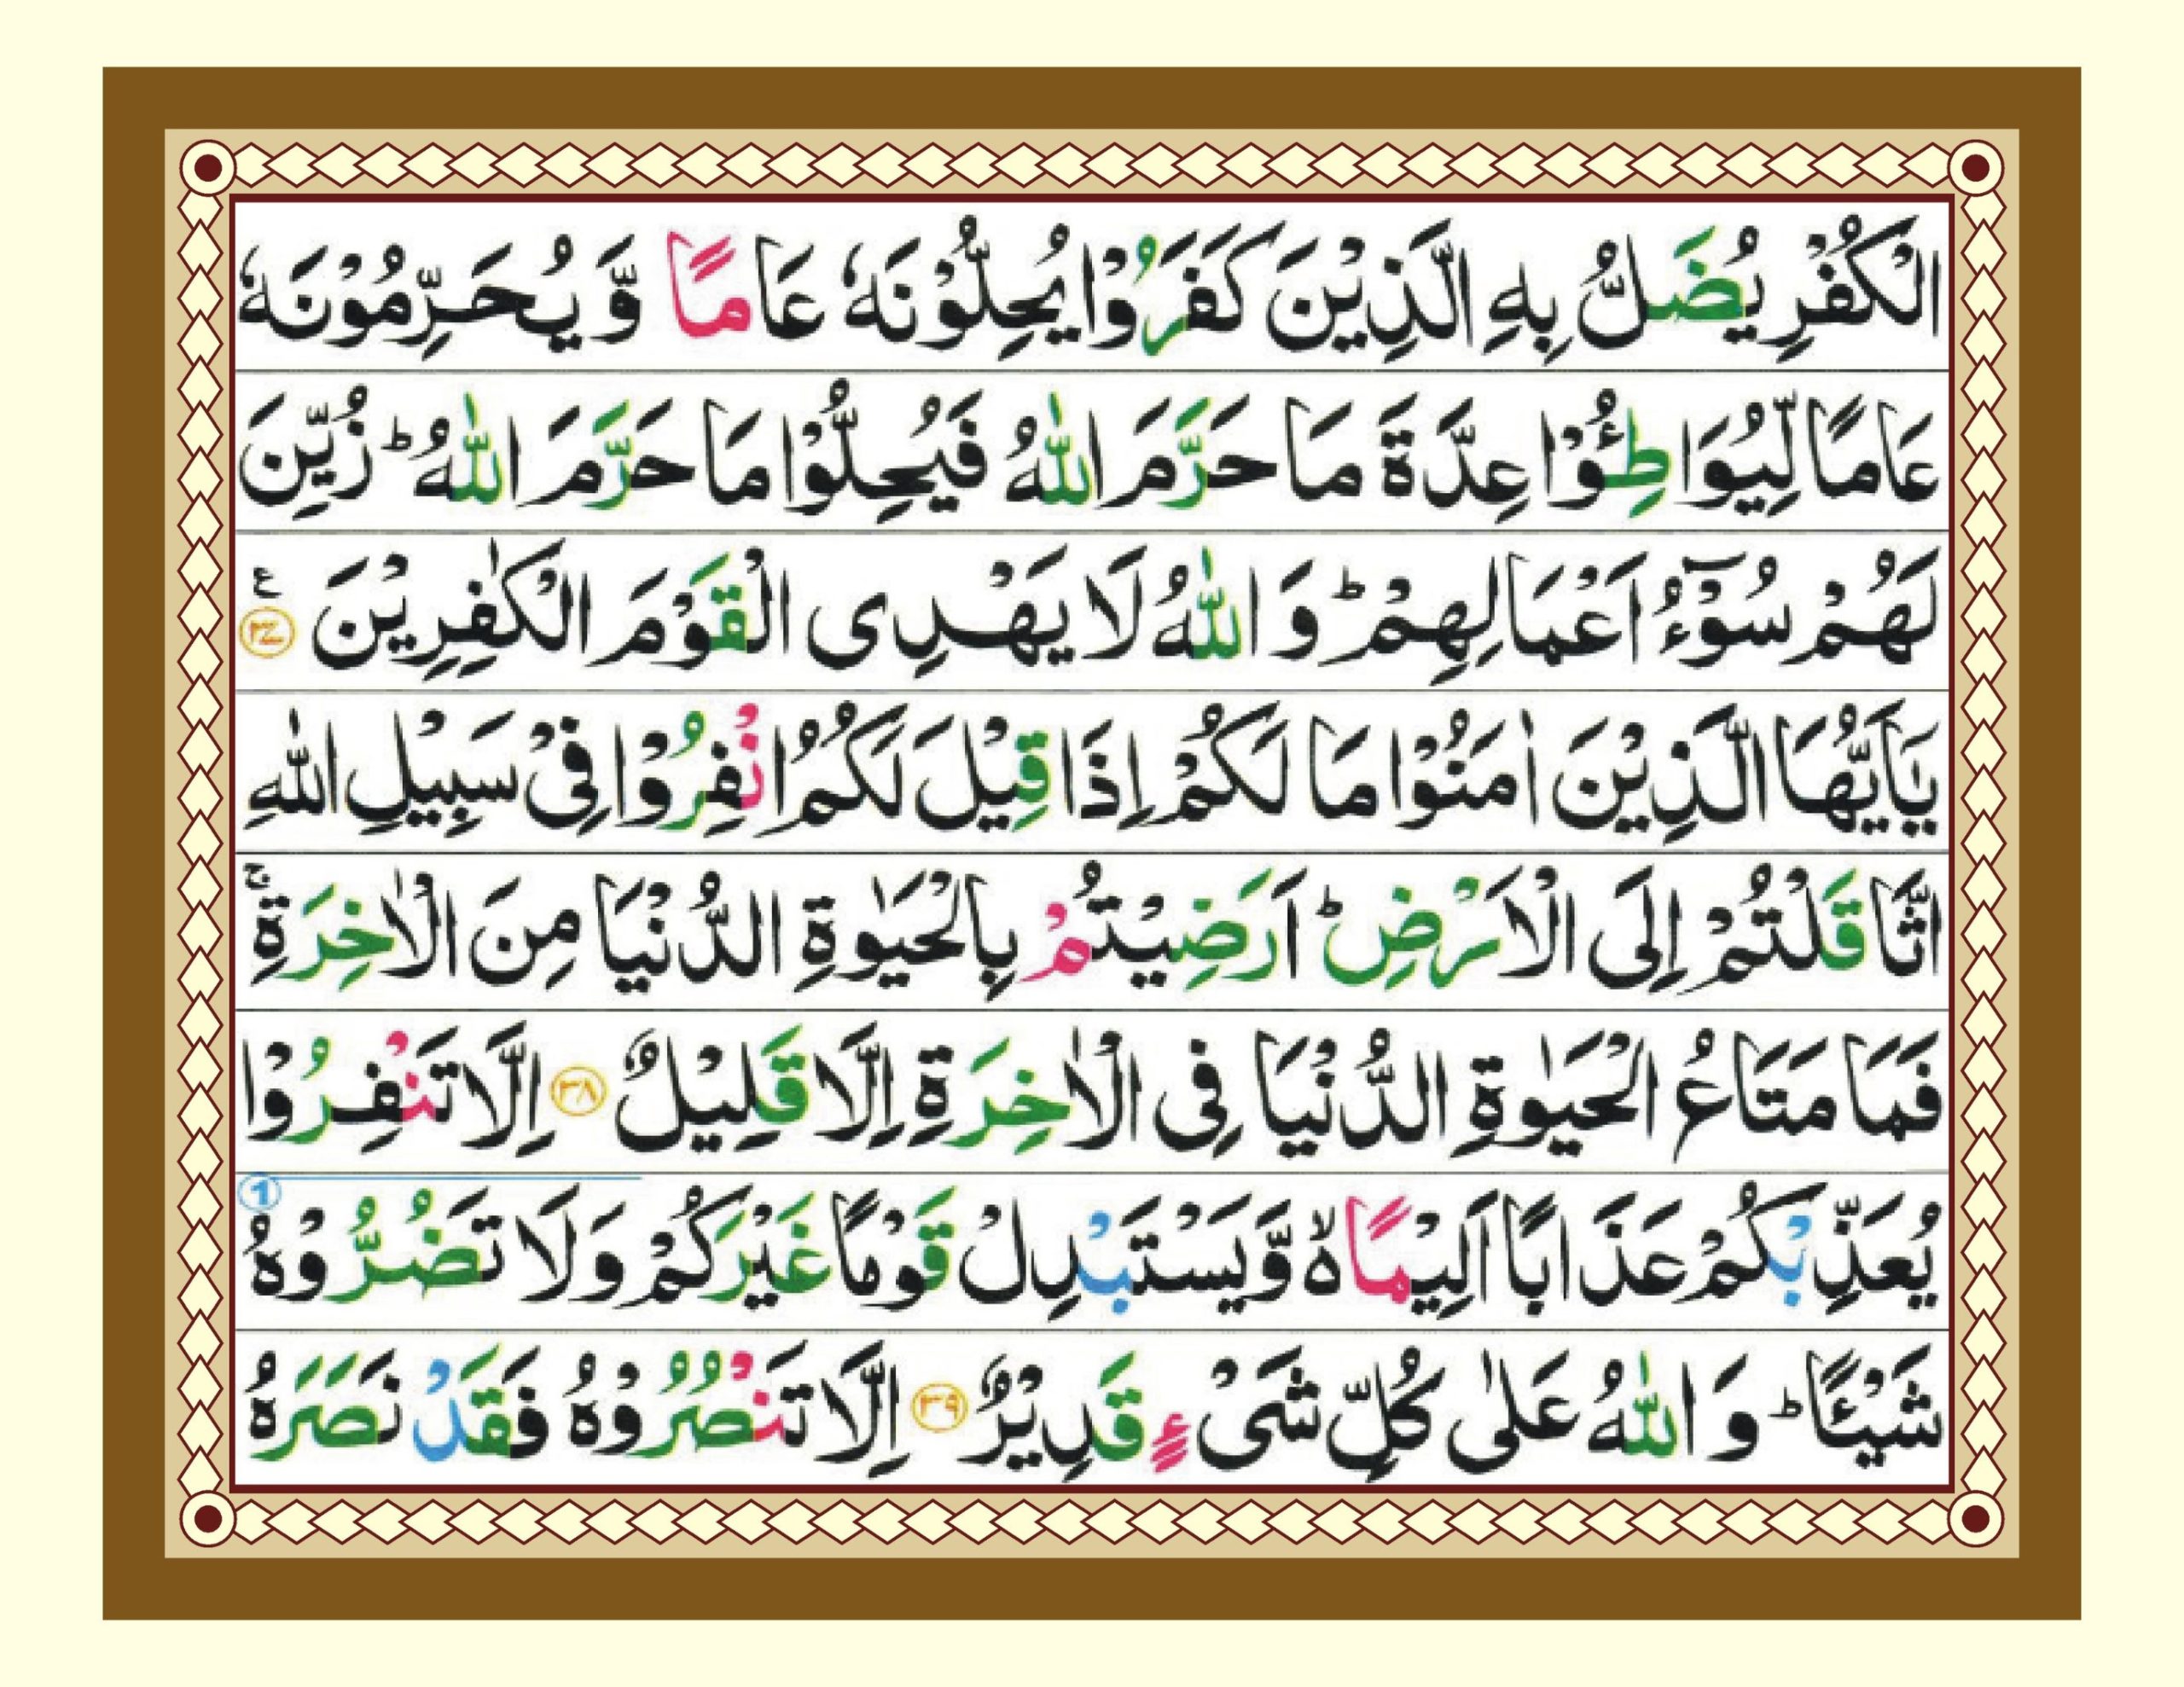 الْكُفْرِ يُضَلُّ بِهِ الَّذِيْنَ كَفَرُوْا يُحِلُّوْنَهٗ عَامًا وَّ يُحَرِّمُوْنَهٗ
عَامًا لِّيُوَاطِـُٔوْا عِدَّةَ مَا حَرَّمَ اللّٰهُ فَيُحِلُّوْا مَا حَرَّمَ اللّٰهُ ؕ زُيِّنَ
لَهُمْ سُوْٓءُ اَعْمَالِهِمْ ؕ وَ اللّٰهُ لَا يَهْدِی الْقَوْمَ الْكٰفِرِيْنَ ۳۷ ع
يٰۤاَيُّهَا الَّذِيْنَ اٰمَنُوْا مَا لَكُمْ اِذَا قِيْلَ لَكُمُ انْفِرُوْا فِیْ سَبِيْلِ اللّٰهِ
اثَّاقَلْتُمْ اِلَى الْاَرْضِ ؕ اَرَضِيْتُمْ بِالْحَيٰوةِ الدُّنْيَا مِنَ الْاٰخِرَةِ ۚ
فَمَا مَتَاعُ الْحَيٰوةِ الدُّنْيَا فِی الْاٰخِرَةِ اِلَّا قَلِيْلٌ ۳۸ اِلَّا تَنْفِرُوْا
يُعَذِّبْكُمْ عَذَابًا اَلِيْمًا ۙ۬ وَّيَسْتَبْدِلْ قَوْمًا غَيْرَكُمْ وَلَا تَضُرُّوْهُ 1
شَيْـًٔا ؕ وَ اللّٰهُ عَلٰى كُلِّ شَیْءٍ قَدِيْرٌ ۳۹ اِلَّا تَنْصُرُوْهُ فَقَدْ نَصَرَهُ